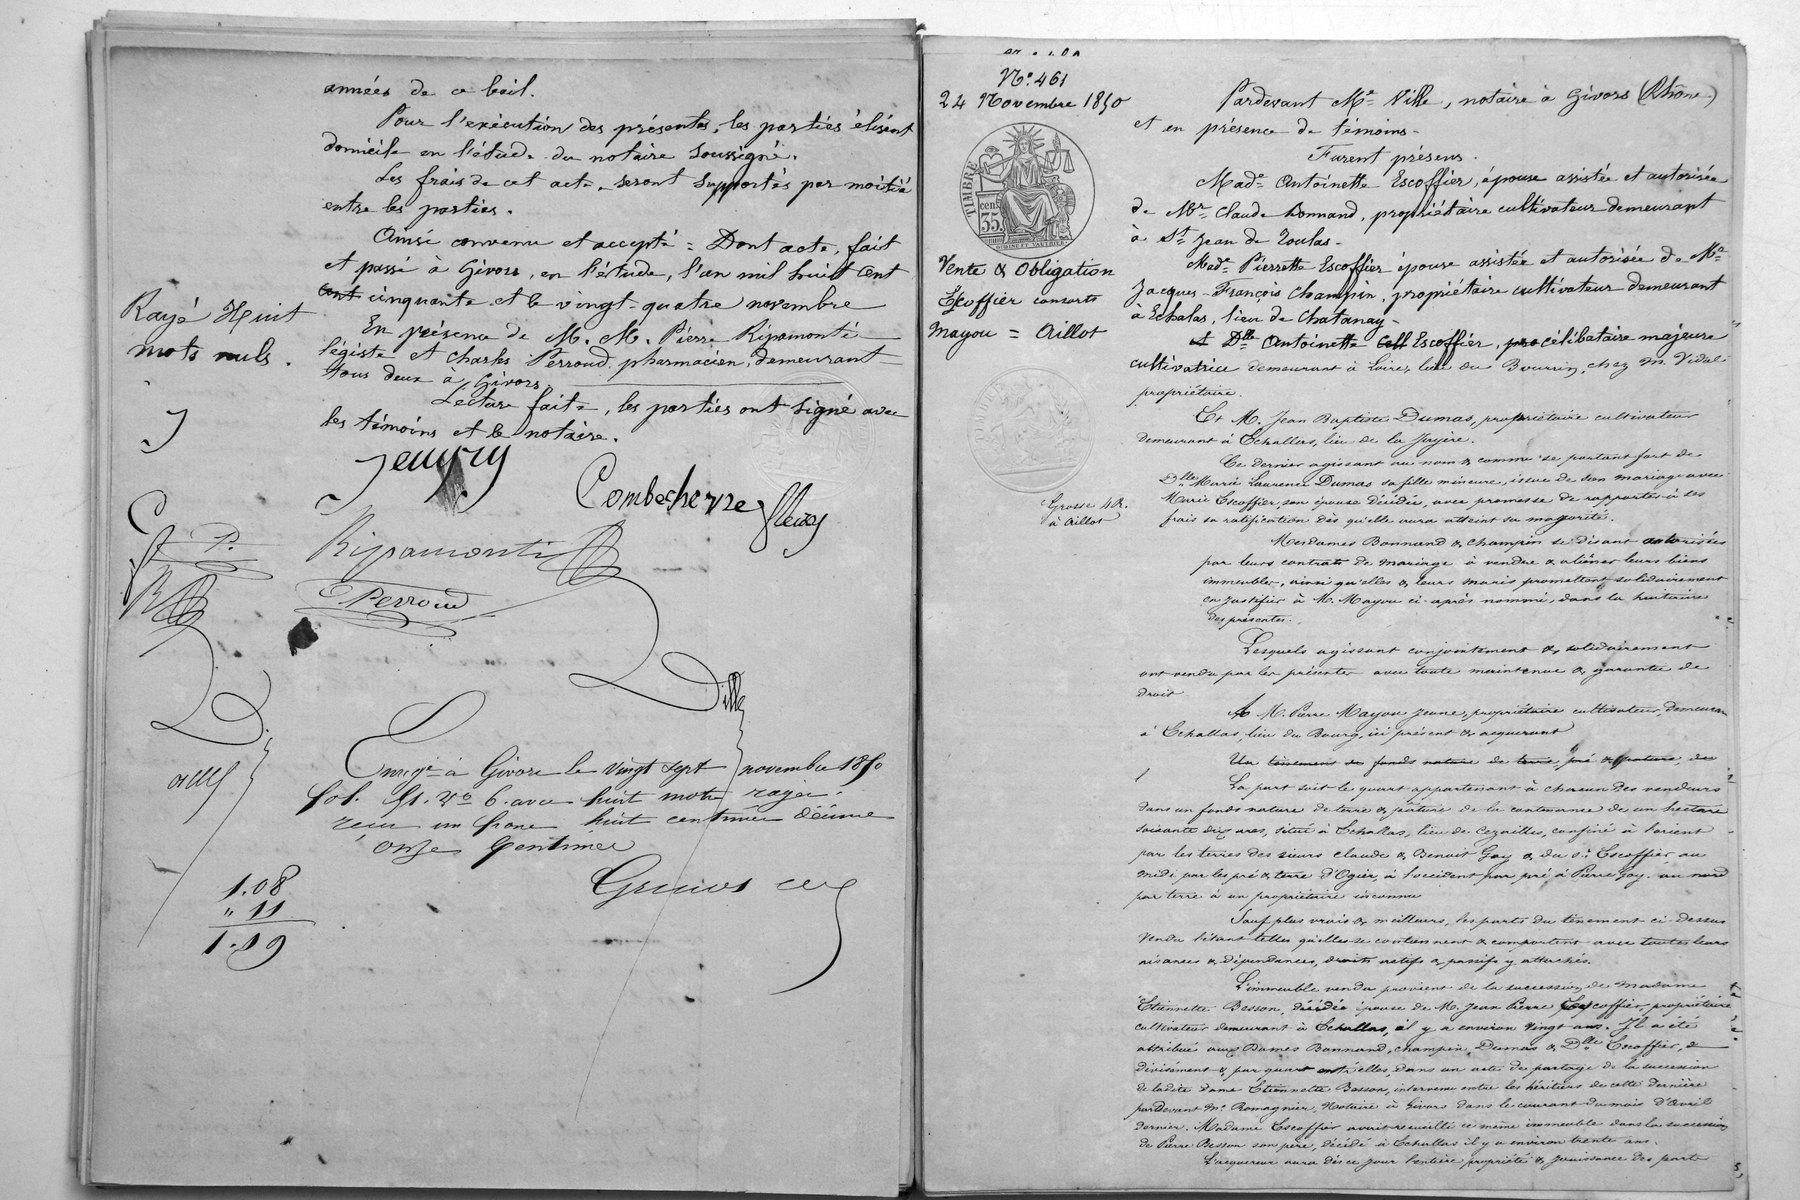 années de ce bail.
Pour l'exécution des présentes, les parties élisent
domicile en l'étude du notaire soussigné.
Les frais de cet acte, seront supportés par moitié
entre les parties.
Ainsi convenu et accepté = Dont acte, fait
et passé à Givors, en l'étude, l'an mil huit cent
cent cinquante et le vingt-quatre novembre
En présence de M. M. Pierre Ripamonti
légiste et Charles Perroud pharmacien, demeurant
tous deux à Givors.
Lecture faite, les parties ont signé avec
les témoins et le notaire.
Rayé Huit
mots nuls.
Combecherre fleury
P.
Ripamonti
Perroud
R
Ville
Enregé à Givors le vingt sept novembre 1850
fol. 51. Vo 6. avec huit mots rayés.
reçu un franc huit centimes décime
onze centimes
1.08
" 11
1.19
No. 461
24 Novembre 1850
TIMBRE
cent.
35.
Vente & Obligation
Escoffier consorts
Mayou = Aillot
Grosse 4 R.
à Aillot
Pardevant Me Ville, notaire à Givors (Rhône)
et en présence de témoins -
Furent présens.
Made Antoinette Escoffier, épouse assistée et autorisée
de Mr Claude Bonnand, propriétaire cultivateur demeurant
à St Jean de Toulas -
Made Pierrette Escoffier épouse assistée et autorisée de Mr
Jacques-François Champin, propriétaire cultivateur demeurant
à Echalas, lieu de Chatanay -
et Dlle Antoinette Escoffier, célibataire majeure
cultivatrice demeurant à Loire, lieu du Bourrin, chez M. Vidal
propriétaire.
Et M. Jean Baptiste Dumas, propriétaire cultivateur
demeurant à Echallas, lieu de la Jayère.
Ce dernier agissant au nom & comme se portant fort de
Dlle Marie Laurence Dumas sa fille mineure, issue de son mariage avec
Marie Escoffier, son épouse décédée, avec promesse de rapporter à ses
frais sa ratification dès qu'elle aura atteint sa majorité.
Mesdames Bonnand & Champin se disant autorisées
par leurs contrats de mariage à vendre & aliéner leurs biens
immeubles, ainsi qu'elles & leurs maris promettent solidairement
en justifier à M. Mayou ci-après nommé, dans la huitaine
des présentes.
Lesquels agissant conjointement & solidairement
ont vendu par les présentes avec toute maintenue & garantie de
droit
A M. Pierre Mayou jeune, propriétaire cultivateur, demeurant
à Echallas, lieu du Bourg, ici présent & acquérant
Un tènement de fonds nature de terre pré & pature, du
1
La part soit le quart appartenant à chacun des vendeurs
dans un fonds nature de terre & pature de la contenance de un hectare
soixante dix ares, situé à Echallas, lieu de Cezailles, confiné à l'orient
par les terres des sieurs Claude & Benoit Gay & du Sr Escoffier, au
midi par les pré & terre d'Ogier, à l'occident par pré à Pierre Gay, au nord
par terre à un propriétaire inconnu
Sauf plus vrais & meilleurs, les parts du tènement ci-dessus
vendu l'étant telles qu'elles se contiennent & comportent avec toutes leurs
aisances & dépendances, droits actifs & passifs y attachés.
L'immeuble vendu provient de la succession de Madame
Etiennette Besson, décédée épouse de M. Jean Pierre Escoffier, propriétaire
cultivateur demeurant à Echallas, il y a environ vingt ans. Il a été
attribué aux Dames Bonnand, Champin, Dumas & Dlle Escoffier,
divisément & par quart entr'elles, dans un acte de partage de la succession
de ladite dame Etiennette Besson, intervenu entre les héritiers de cette dernière
pardevant Me Romagnier, Notaire à Givors dans le courant du mois d'Avril
dernier. Madame Escoffier avait recueilli ce même immeuble dans la succession
de Pierre Besson son père, décédé à Echallas il y a environ trente ans.
L'acquéreur aura dès ce jour l'entière propriété & jouissance des parts